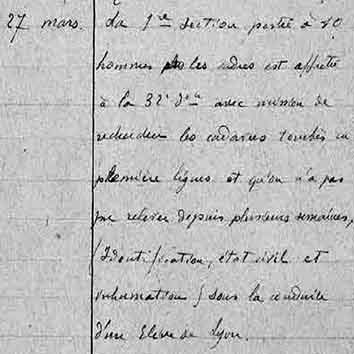 27 mars. La 1re section portée à 40
hommes plus les cadres est affectée
à la 32e Don avec mission de
rechercher les cadavres tombés en
première lignes et qu'on n'a pas
pu relever depuis plusieurs semaines,
(Identification, état civil et
inhumation) sous la conduite
d'un Elève de Lyon.